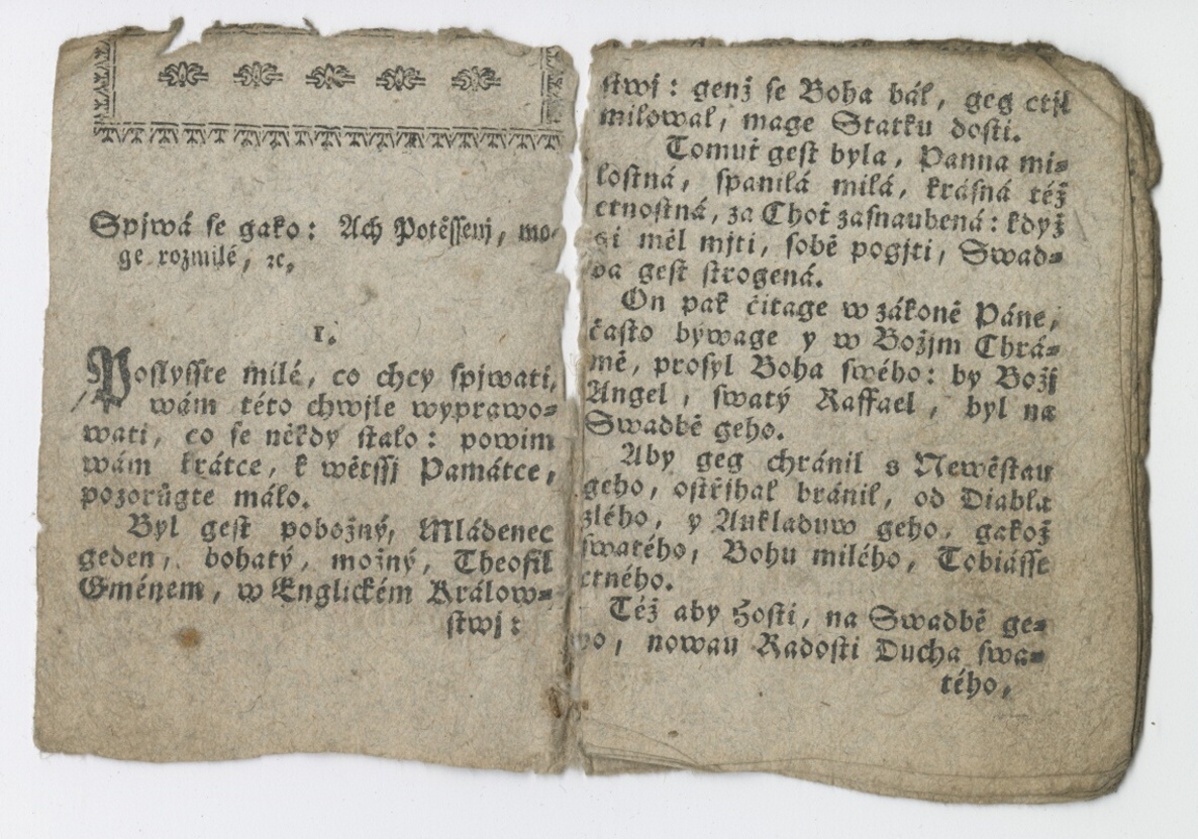 Spjwá se gako: Ach Potěssenj, mo-
ge rozmilé, ꝛc.
1.
Poslyste milé, co chcy spjwati,
wám této chwjle wyprawo-
wati, co se někdy stalo: powim
wám krátce, k wětssj Památce,
pozorůgte málo.
Byl gest pobožný, Mládenec
geden, bohatý, možný, Theofil
Gménem, w Englickém Králow-
stwj:
stwj: genž se Boha bál, geg ctjl
milowal, mage Statku dosti.
Tomuť gest byla, Panna mi-
lostná, spanilá milá, krásná též
ctnostná, za Choť zasnaubená: když
gi měl mjti, sobě pogjti, Swad-
ba gest strogená.
On pak čitage w zákoně Páně,
často býwage y w Božjm Chrá-
mě, prosyl Boha swého: by Božj
Angel, swatý Raffael, byl na
Swadbě geho.
Aby geg chránil s Newěstau
geho, ostřjhal bránil, od Diabla
zlého, y Aukladuw geho, gakož
swatého, Bohu milého, Tobiásse
ctného.
Též aby Hosti, na Swadbě ge-
ho, nowau Radosti Ducha swa-
tého,